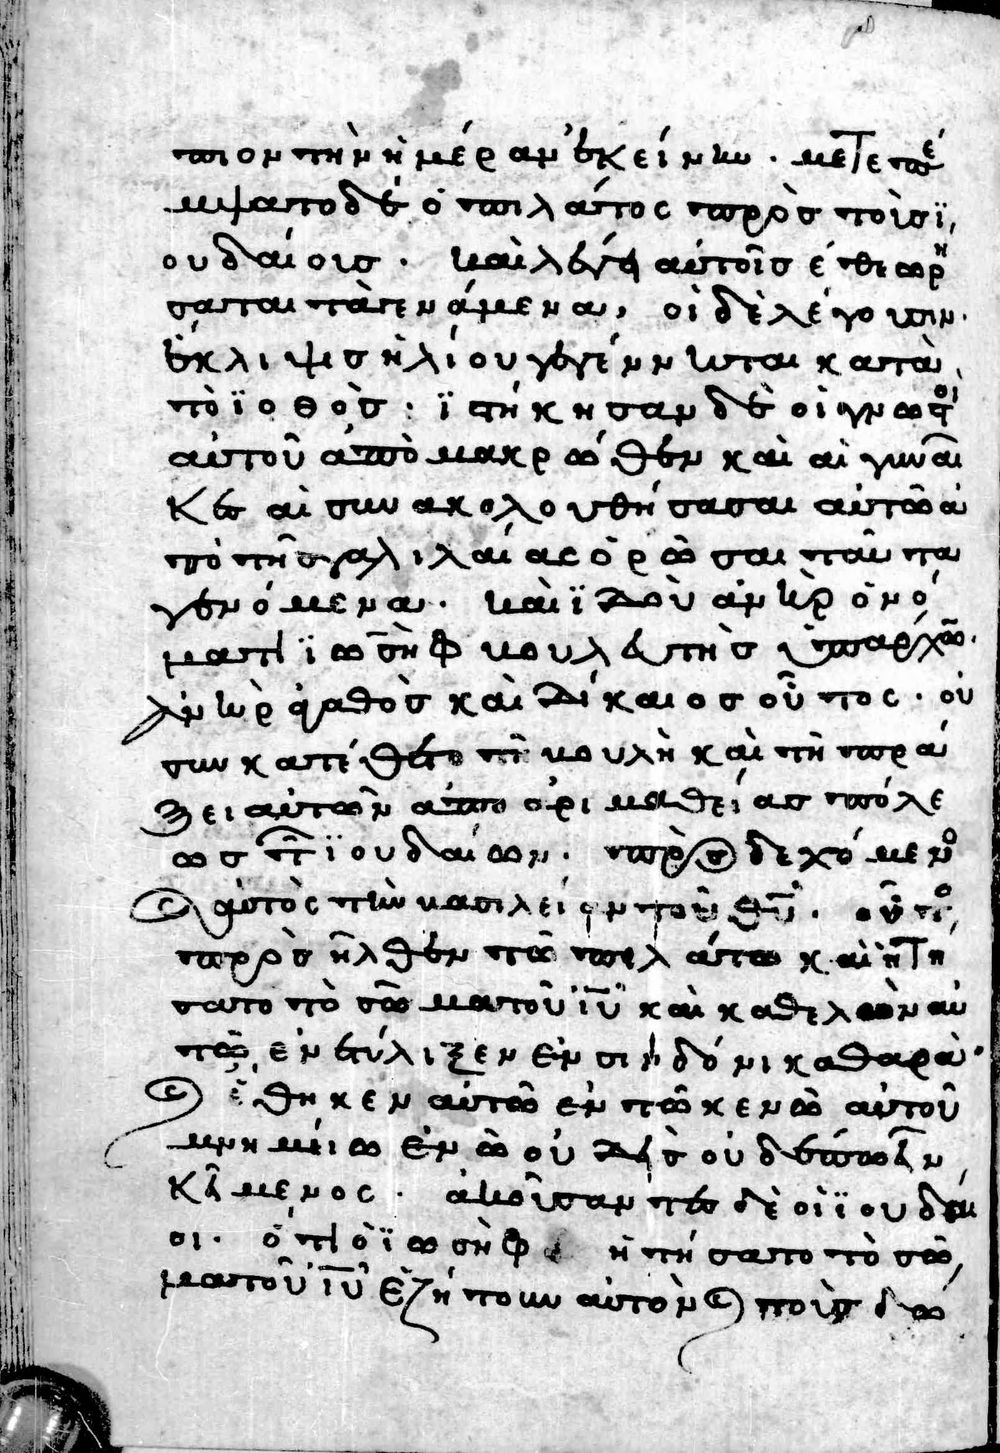 πιον τὴν ἡμέραν ἐκείνην · μετεπέ
μψατο δὲ ὁ πιλάτος πρὸσ τοὶσ ϊ
ουδαίοισ · καὶ λέγει αὐτοῖσ ἐθεωρή
σαται τὰ γενάμενα, οἱ δὲ λέγουσιν ·
ἔκλιψισ ἡλίου γεγένηται κατὰ
τὸ ϊοθὸσ : ϊστήκησαν δὲ οἱ γνωστοὶ
αὐτοῦ ἀπὸ μακρώθεν καὶ αἱ γυναῖ
κεσ αἱ συνακολουθήσασαι αὐτῶ ἀ
πὸ τῆσ γαλιλαίας ὁρῶσαι ταῦτα
γενόμενα · καὶ ϊδοὺ ἀνὴρ ὀνό
ματι ϊωσὴφ βουλευτὴσ ὑπάρχων ·
ἀνὴρ ἀγαθὸσ καὶ δίκαιοσ οὗτος · οὐ
συνκατέθετο τῆ βουλῆ καὶ τῆ πρά
ξει αὐτῶν ἀπὸ ἀριμαθείασ πόλε
ωσ τῶν ϊουδαίων · προσδεχόμενο
ς αὐτὸς τὴν βασιλείαν τοῦ θυ · οὗτος
προσῆλθεν τῶ πιλάτω καὶ ἠτή
σατο τὸ σῶμα τοῦ ιυ καὶ καθελὼν αὐ
τῶ, ἐνετύλιξεν ἐν σινδόνι καθαρᾶ ·
ς ἔθηκεν αὐτῶ ἐν τῶ κενῶ αὐτοῦ
μνημείω ἐν ὧ οὐδεὶσ οὐδέπω ἦν
κείμενος · ἀκούσαντεσ δὲ οἱ ϊουδαῖ
οι · ὅτι ὁ ϊωσὴφ ἠτήσατο τὸ σῶ
μα τοῦ ιυ ἐζήτουν αὐτὸν ς τοὶσ δώ